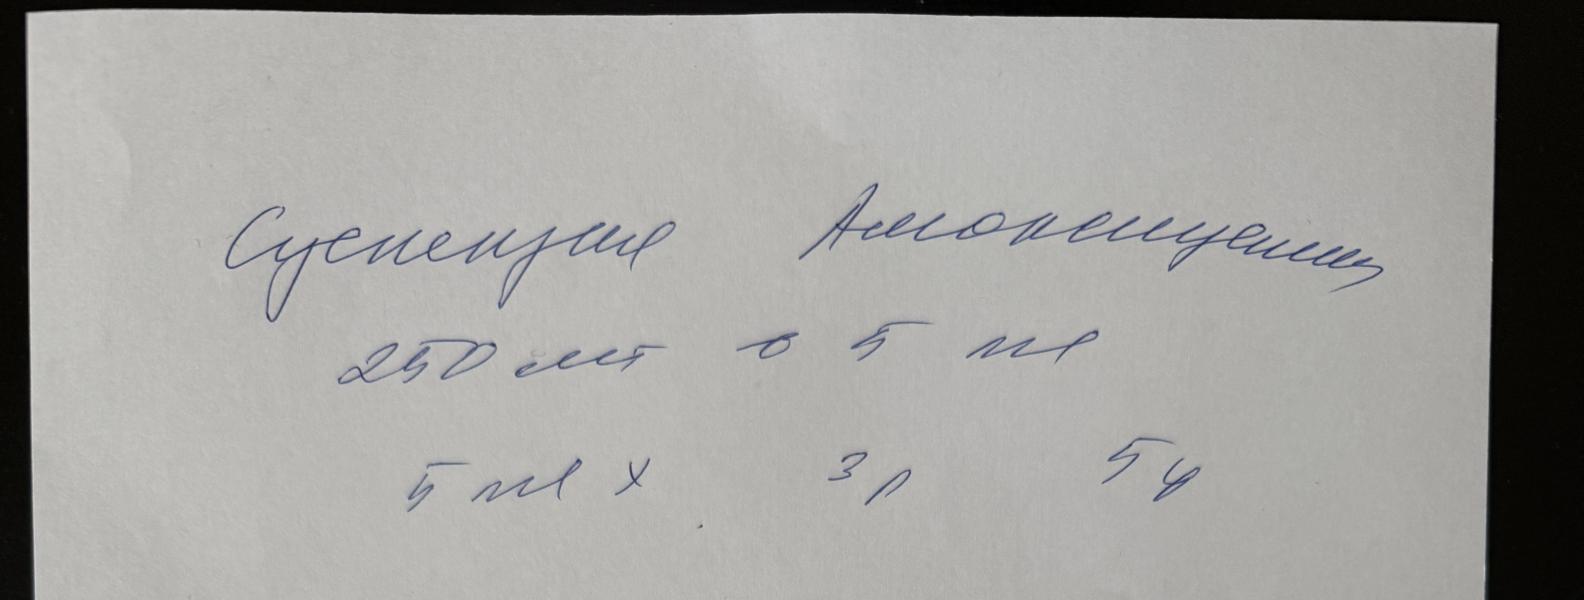 Суспензия Амоксициллин
250 мг в 5 мл
5 мл х 3 р 5 д